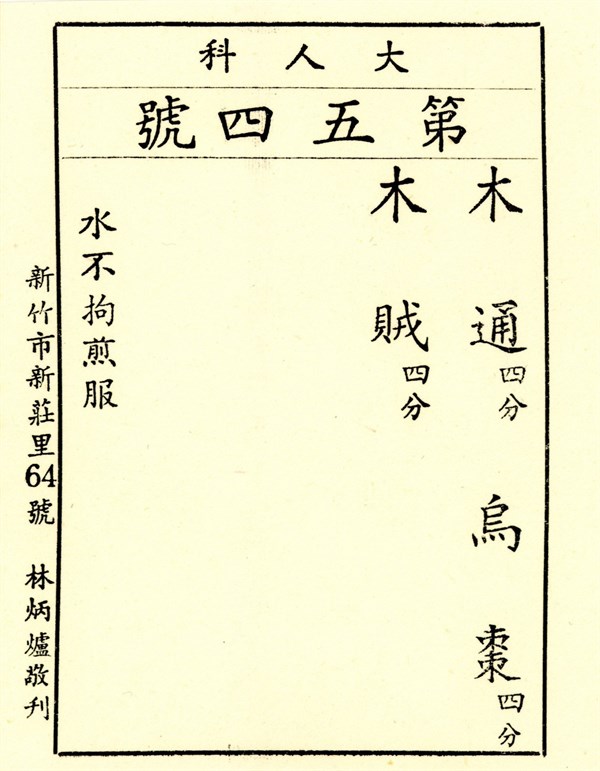 大人科
第五四號
木通四分　烏棗四分
木賊四分
水不拘煎服
新竹市新莊里64號　林炳爐敬刋